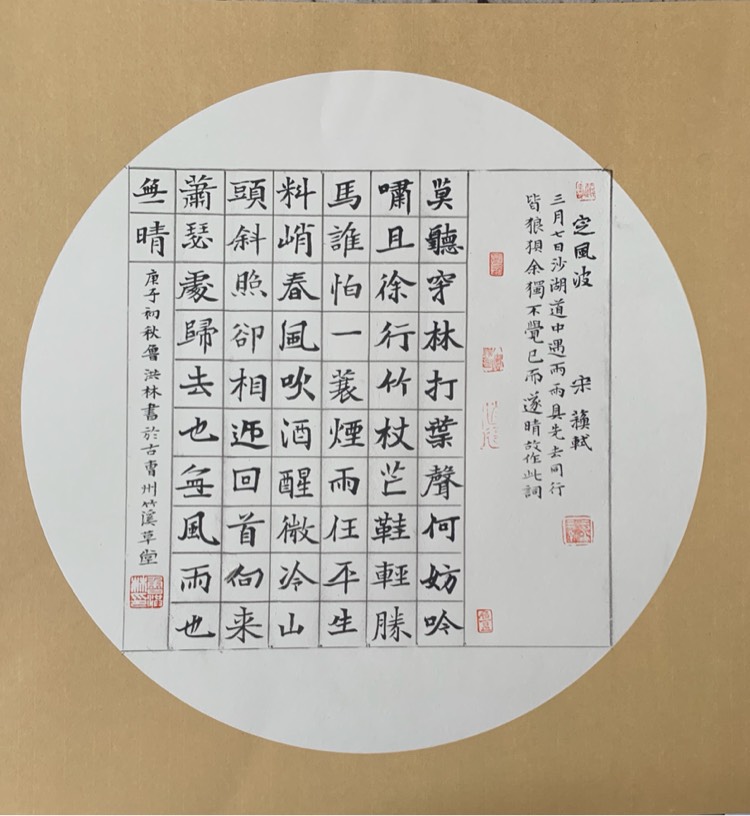 定風波 宋 蘓軾
三月七日沙湖道中遇雨雨具先去同行
皆狼狽余獨不覺已而遂晴故作此詞
莫聽穿林打葉聲何妨吟
嘯且徐行竹杖芒鞋輕勝
馬誰怕一蓑煙雨任平生
料峭春風吹酒醒微冷山
頭斜照卻相迎回首向来
蕭瑟處歸去也無風雨也
無晴
庚子初秋魯洪林書於古曹州竹溪草堂